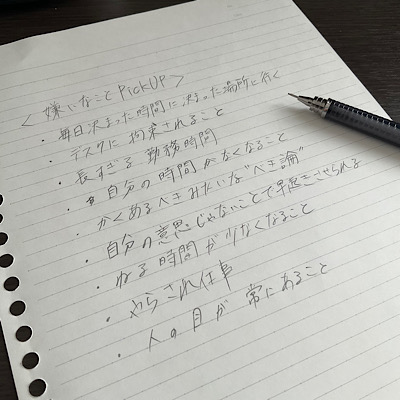 <嫌いなこと PickUP>
・毎日決まった時間に決まった場所に行く
・デスクに拘束されること
・長すぎる勤務時間
・自分の時間がなくなること
・かくあるべきみたいな"べき論"
・自分の意思じゃないことで早起きさせられる
・ねる時間が少なくなること
・やらされ仕事
・人の目が常にあること